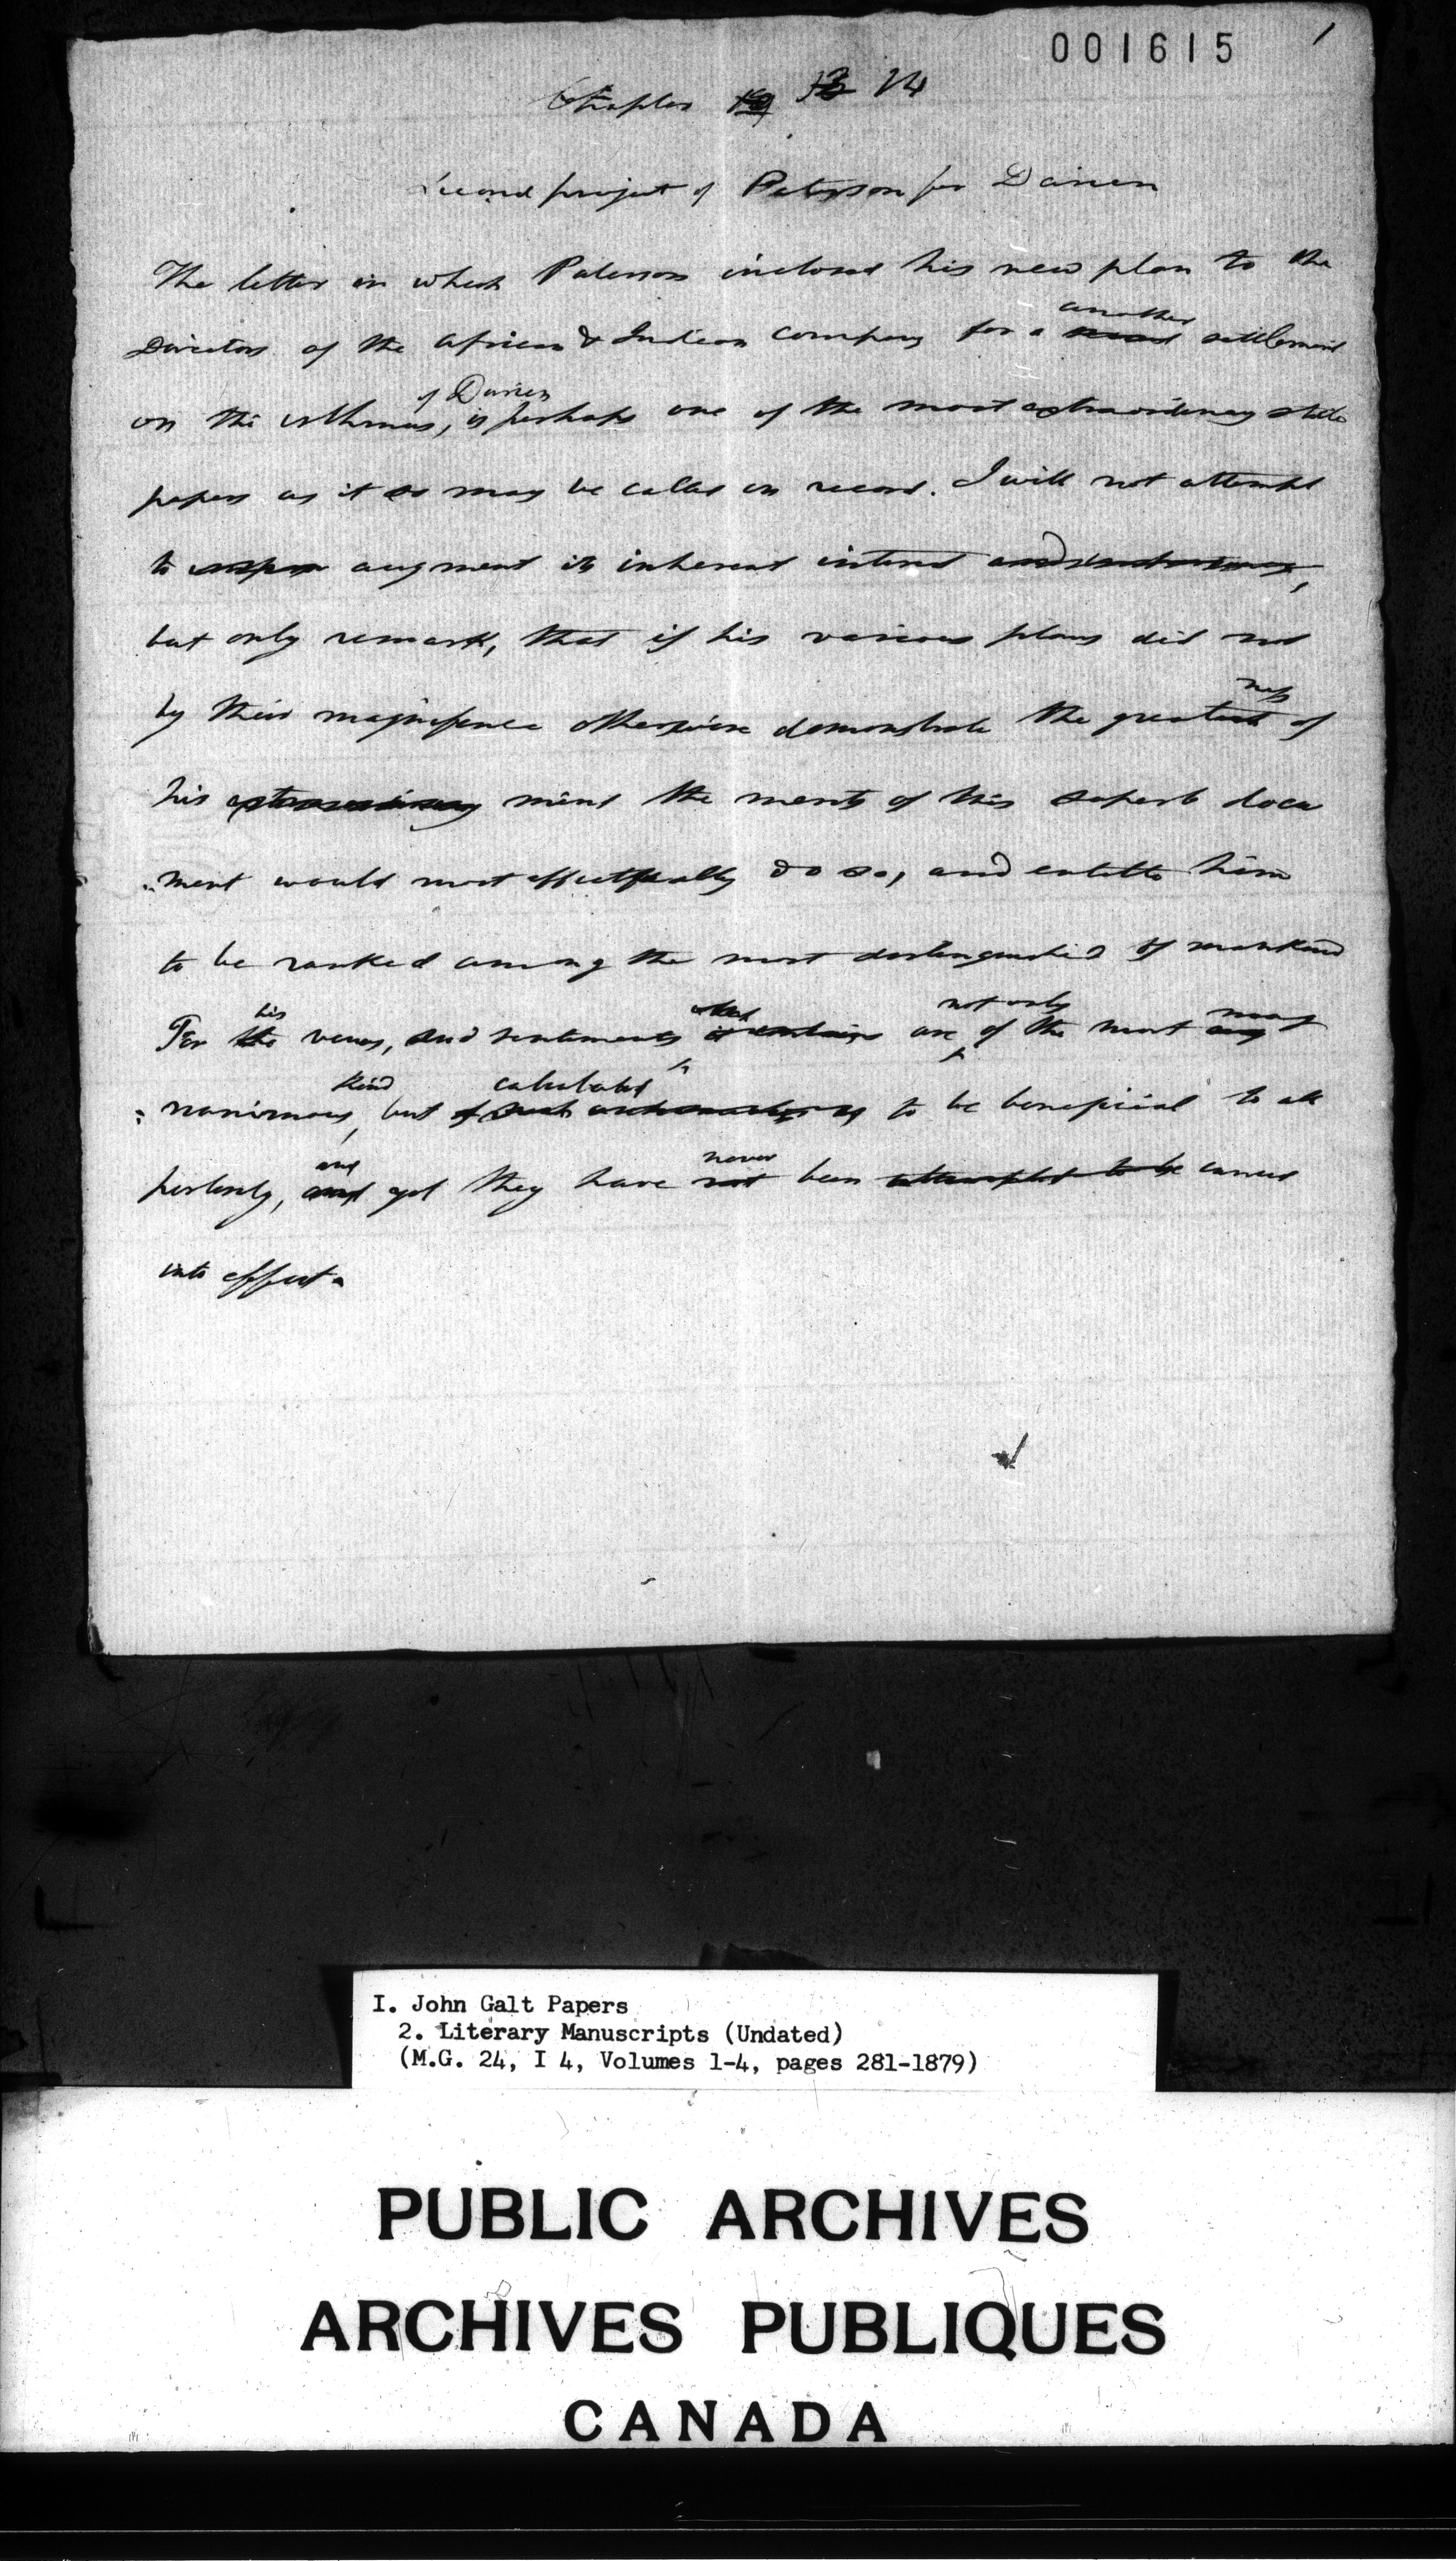 001615
Chapter 12 13 14
Second project of Paterson for Darien
The letter in which Paterson inclosed his new plan to the
Directors of the African & Indian Company for a another settlement
on the isthmus, of Darien is perhaps one of the most extraordinary state
papers as it so may be called on record. I will not attempt
to augment its inherent interest and
but only remark, that if his various plans did not
by their magnificence otherwise demonstrate the greatness of
his extraordinary mind the merits of this superb docu
ment would most effectually do so, and entitle him
to be ranked among the most distinguished of mankind
For the his views, and sentiments it contains are not only of the most mag
nanimous kind, but calculated to be beneficial to all
posterity, and yet they have not never been attempted to be carried
into effect.
I. John Galt Papers
2. Literary Manuscripts (Undated)
(M.G. 24, I 4, Volumes 1-4, pages 281-1879)
PUBLIC ARCHIVES
ARCHIVES PUBLIQUES
CANADA